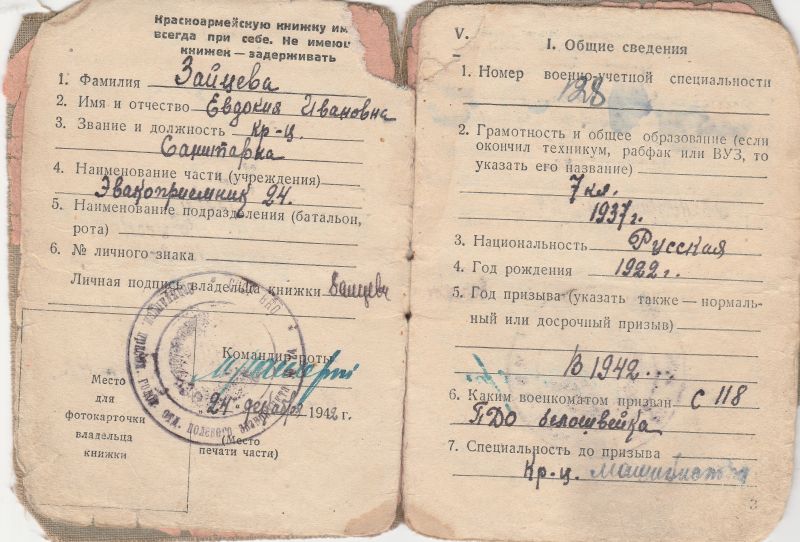 Красноармейскую книжку им
всегда при себе. Не имеющ
книжек — задерживать
1. Фамилия Зайцева
2. Имя и отчество Евдокия Ивановна
3. Звание и должность кр-ц.
Санитарка
4. Наименование части (учреждения)
Эвакоприемник 24.
5. Наименование подразделения (батальон,
рота)
6. № личного знака
Личная подпись владельца книжки Зайцева
Командир роты
24 декабря 1942 г.
(Место
печати части)
Место
для
фотокарточки
владельца
книжки
V.
I. Общие сведения
1. Номер военно-учетной специальности
128
2. Грамотность и общее образование (если
окончил техникум, рабфак или ВУЗ, то
указать его название)
7 кл.
1937 г.
3. Национальность Русская
4. Год рождения 1922 г.
5. Год призыва (указать также — нормаль-
ный или досрочный призыв)
В 1942...
6. Каким военкоматом призван С 118
ПДО белошвейка
7. Специальность до призыва
Кр-ц.
3